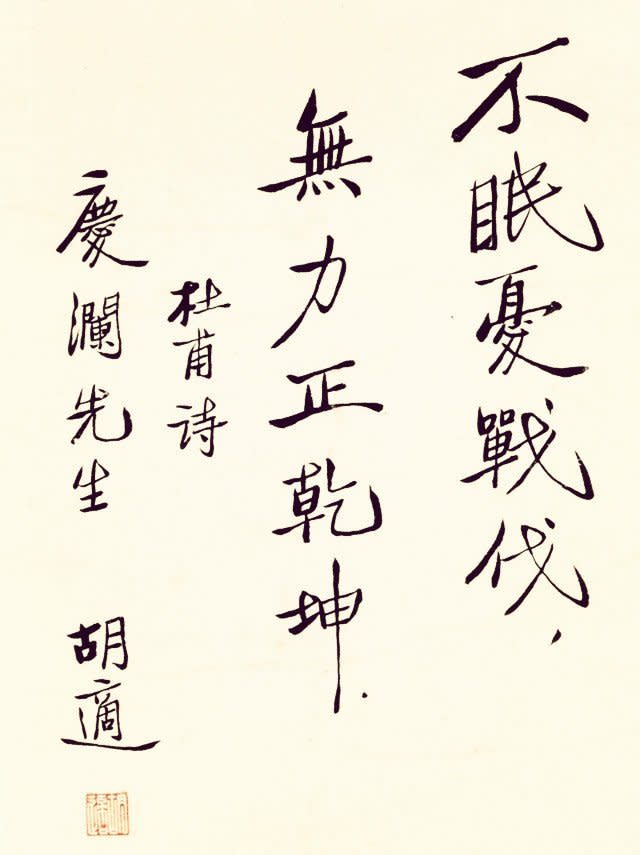 不眠憂戰伐，
無力正乾坤.
杜甫诗
慶瀾先生 胡適